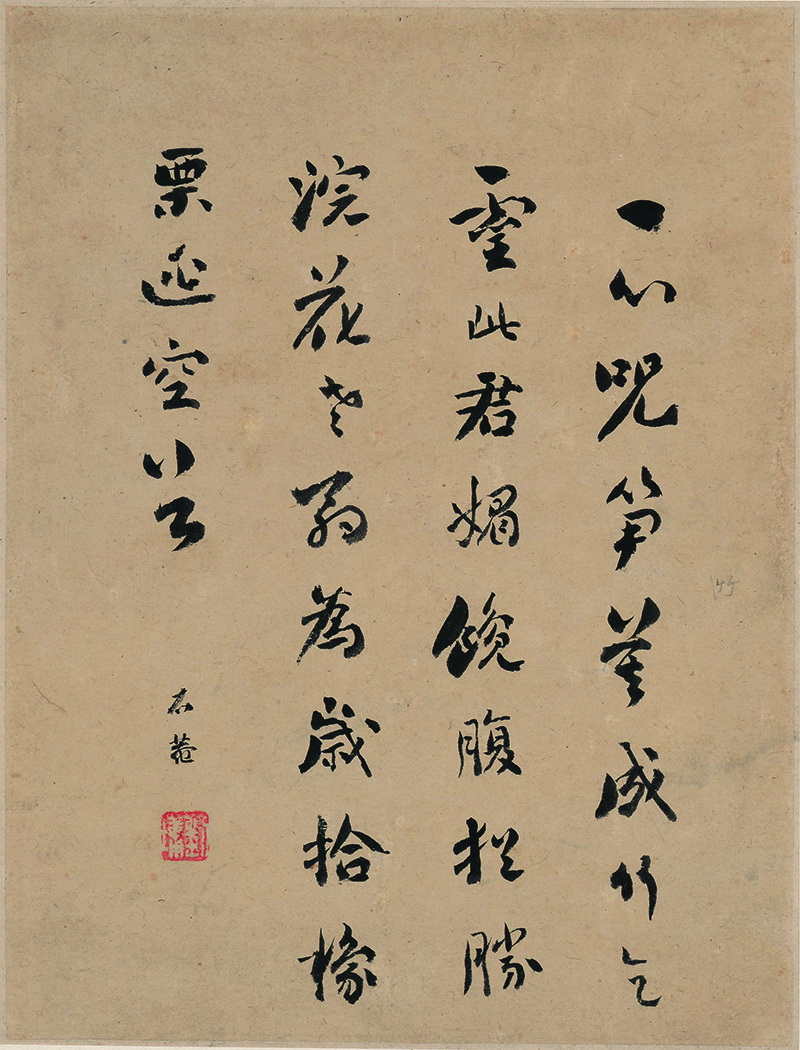 一心咒筍莫成竹乞
靈此君媚饞腹猶勝
浣花老翁為歲拾橡
栗空谷
石菴
竹